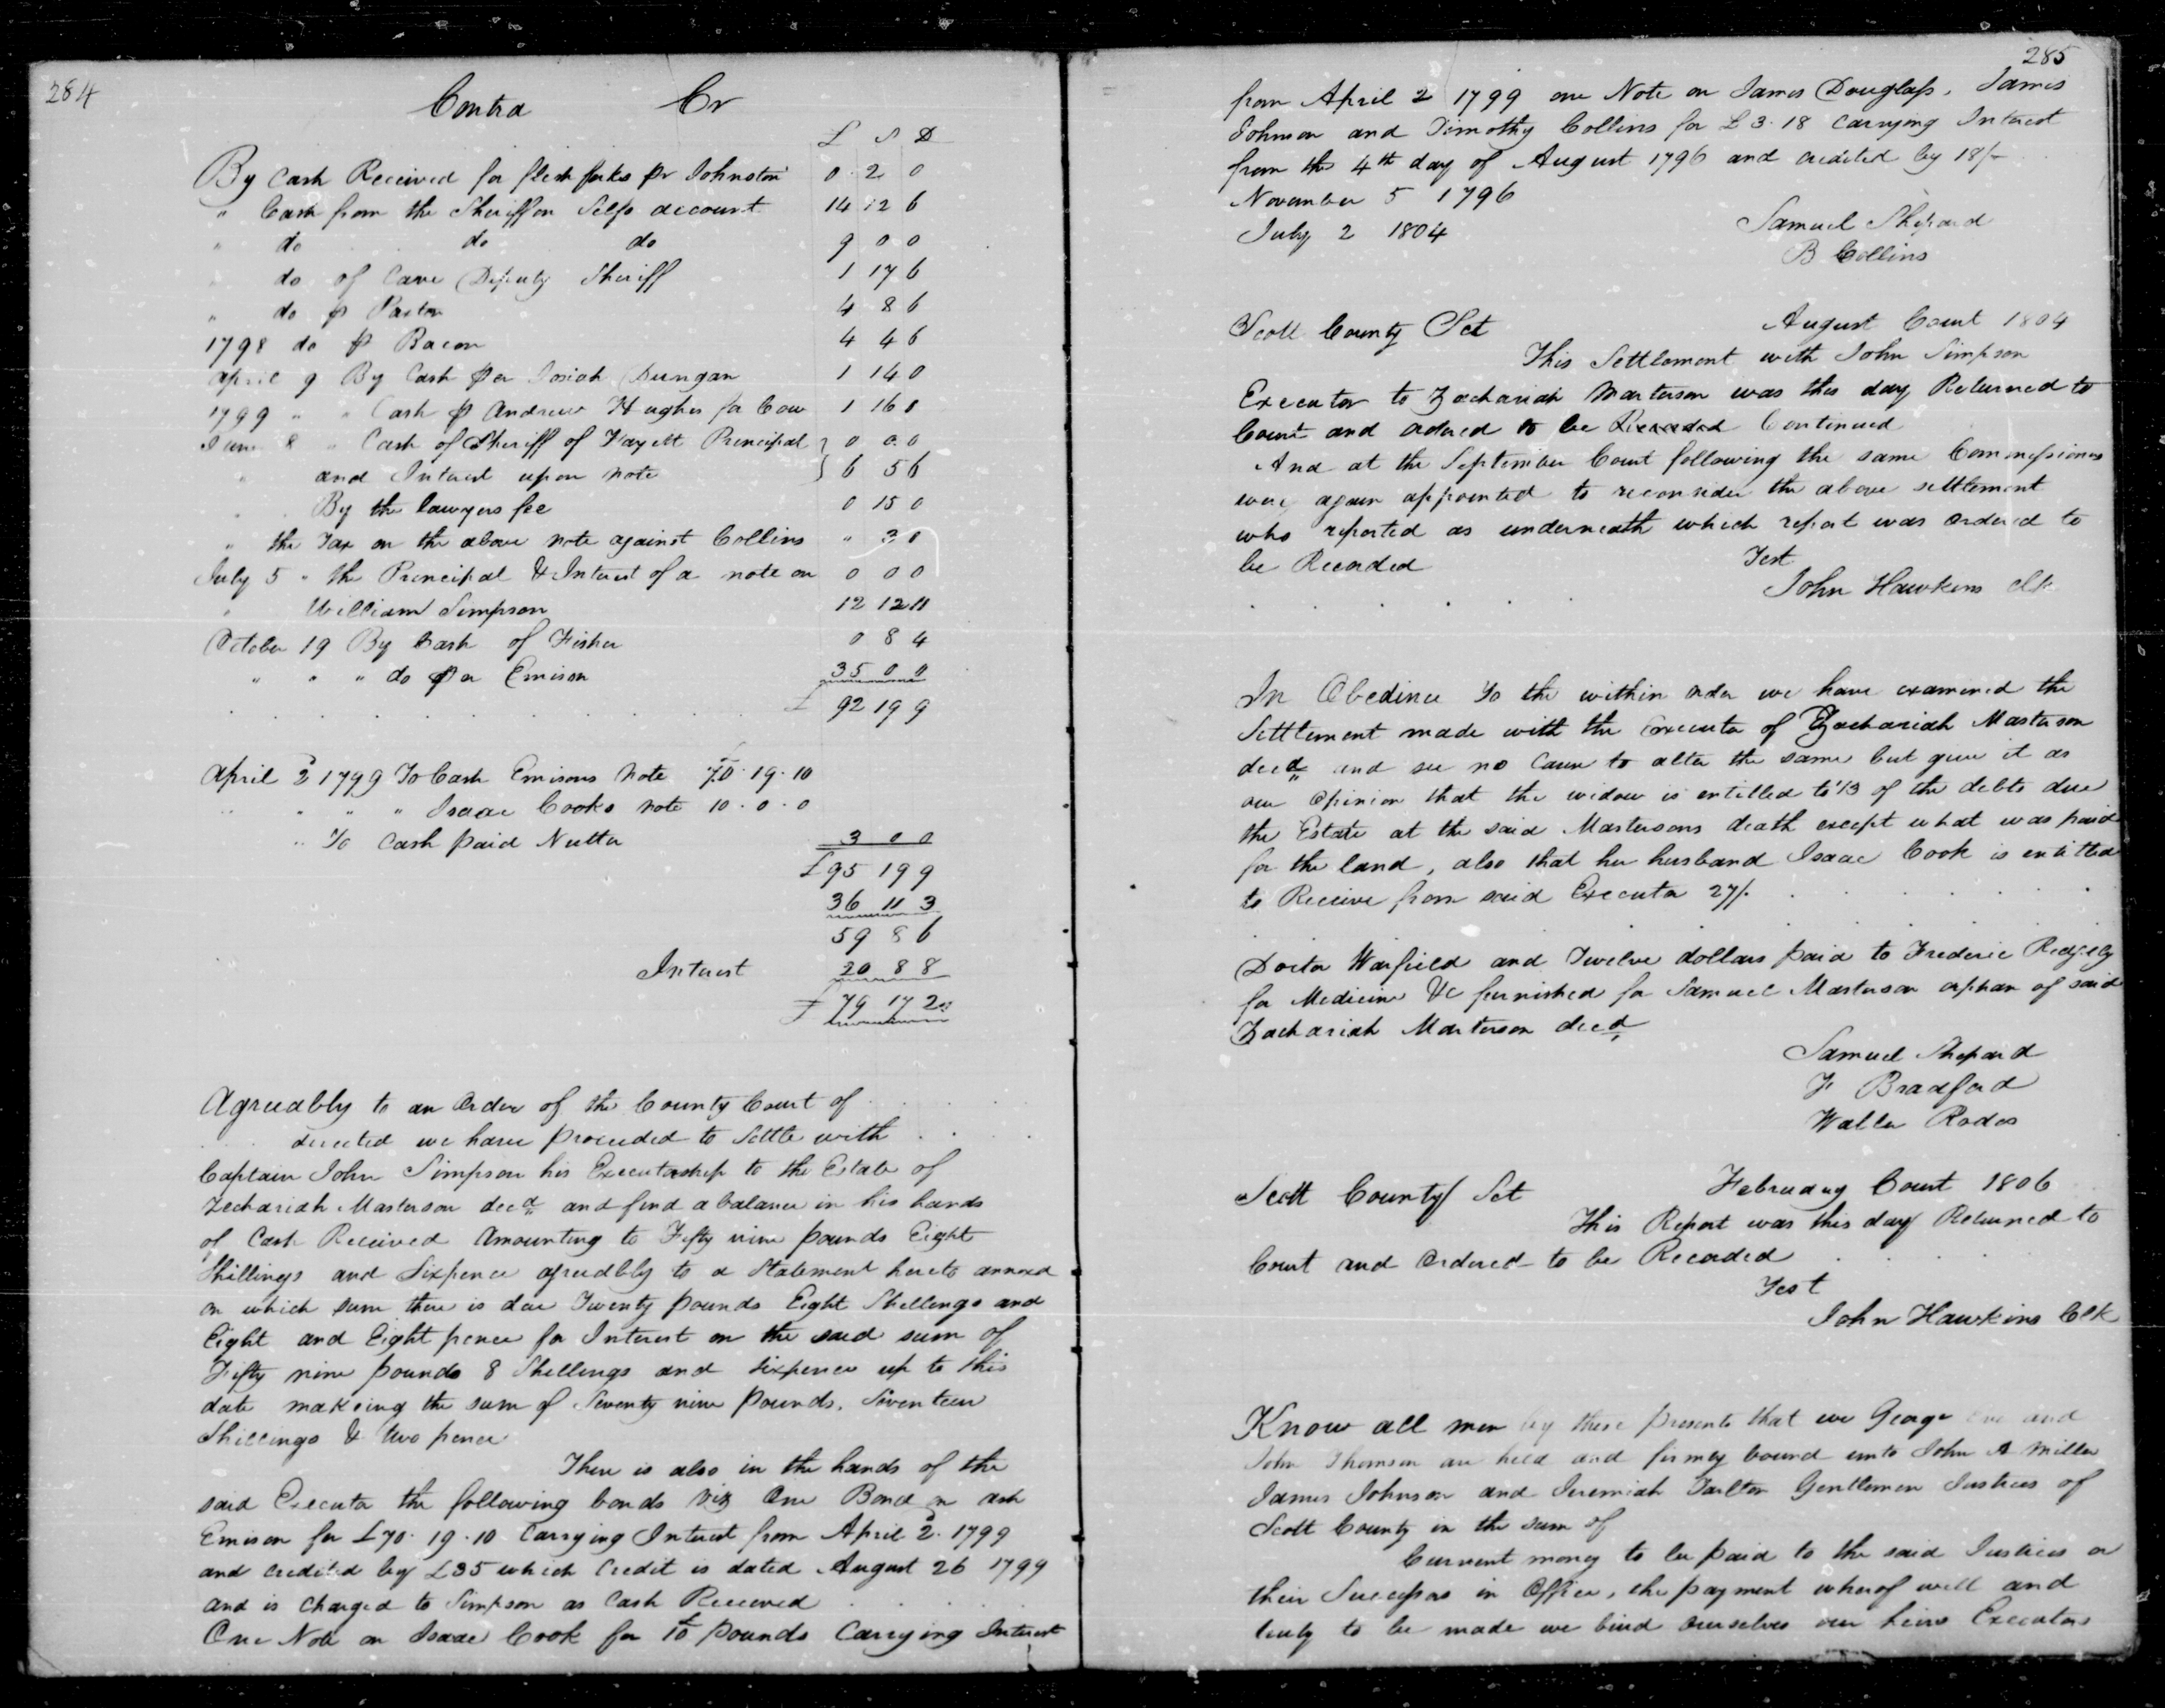 284
Contra Cr
£ S D
By Cash Received for flesh forks pr Johnston 0 2 0
" Cash from the Sheriff on Selfs account 14 12 6
" do do do 9 0 0
do of Cave Deputy Sheriff 1 17 6
" do p Paxton 4 8 6
1798 do p Bacon 4 4 6
April 9 By Cash per Josiah Dungan 1 14 0
1799 " " Cash p Andrew Hughes for Cow 1 16 0
June 8 " Cash of Sheriff of Fayett Principal 0 0 0
" and Interest upon note 6 5 6
By the lawyers fee 0 15 0
" the Tax on the above note against Collins " 3 0
July 5 " the Principal & Interest of a note on 0 0 0
" William Simpson 12 12 11
October 19 By Cash of Fisher 0 8 4
" " " do per Emison 35 0 0
£ 92 19 9
April 2 1799 To Cash Emisons Note £70.19.10
" " " Isaac Cooks note 10.0.0
" To Cash paid Nutter 3 0 0
£95 19 9
36 11 3
59 8 6
Interest 20 8 8
£ 79 17 2
Agreeably to an Order of the County Court of
directed we have proceeded to Settle with
Captain John Simpson his Executorship to the Estate of
Zechariah Masterson decd and find a balance in his hands
of Cash Received Amounting to Fifty nine pounds Eight
Shillings and Sixpence agreeably to a Statement hereto annexed
on which sum there is due Twenty pounds Eight Shillings and
Eight and Eight pence for Interest on the said sum of
Fifty nine pounds 8 Shillings and sixpence up to this
date makeing the sum of Seventy nine pounds, Seventeen
Shillings & two pence
There is also in the hands of the
said Executor the following bonds Viz One Bond on ash
Emison for £70.19.10 Carrying Interest from April 2. 1799
and credited by £35 which Credit is dated August 26 1799
and is Charged to Simpson as Cash Received
One Note on Isaac Cook for 10 pounds Carrying Interest
285
from April 2 1799 one Note on James Douglass, James
Johnson and Timothy Collins for £3.18 Carrying Interest
from the 4th day of August 1796 and credited by 18/-
November 5 1796
July 2 1804 Samuel Shepard
B Collins
Scott County Sct August Court 1804
This Settlement with John Simpson
Executor to Zachariah Masterson was this day Returned to
Court and ordered to be Recorded Continued
And at the September Court following the same Commissioners
were again appointed to reconsider the above settlement
who reported as underneath which report was ordered to
be Recorded Test
John Hawkins Clk
In Obedince To the within order we have examined the
Settlement made with the Executor of Zachariah Masterson
decd and see no Cause to alter the same but give it as
our Opinion that the widow is entitled to 1/3 of the debts due
the Estate at the said Mastersons death except what was paid
for the land, also that her husband Isaac Cook is entitled
to Receive from said Executor 27/.
Doctor Warfield and Twelve dollars paid to Frederic Redgely
for Medicine &c furnished for Samuel Masterson orphan of said
Zachariah Masterson decd
Samuel Shepard
F Bradford
Waller Rodes
Scott County Sct February Court 1806
This Report was this day Returned to
Court and Ordered to be Recorded
Test
John Hawkins Clk
Know all men by these presents that we George and
John Thomson are held and firmly bound unto John A Miller
James Johnson and Jeremiah Tarlton Gentlemen Justices of
Scott County in the sum of
Current money to be paid to the said Justices or
their Successors in Office, the payment wherof well and
truly to be made we bind ourselves our heirs Executors